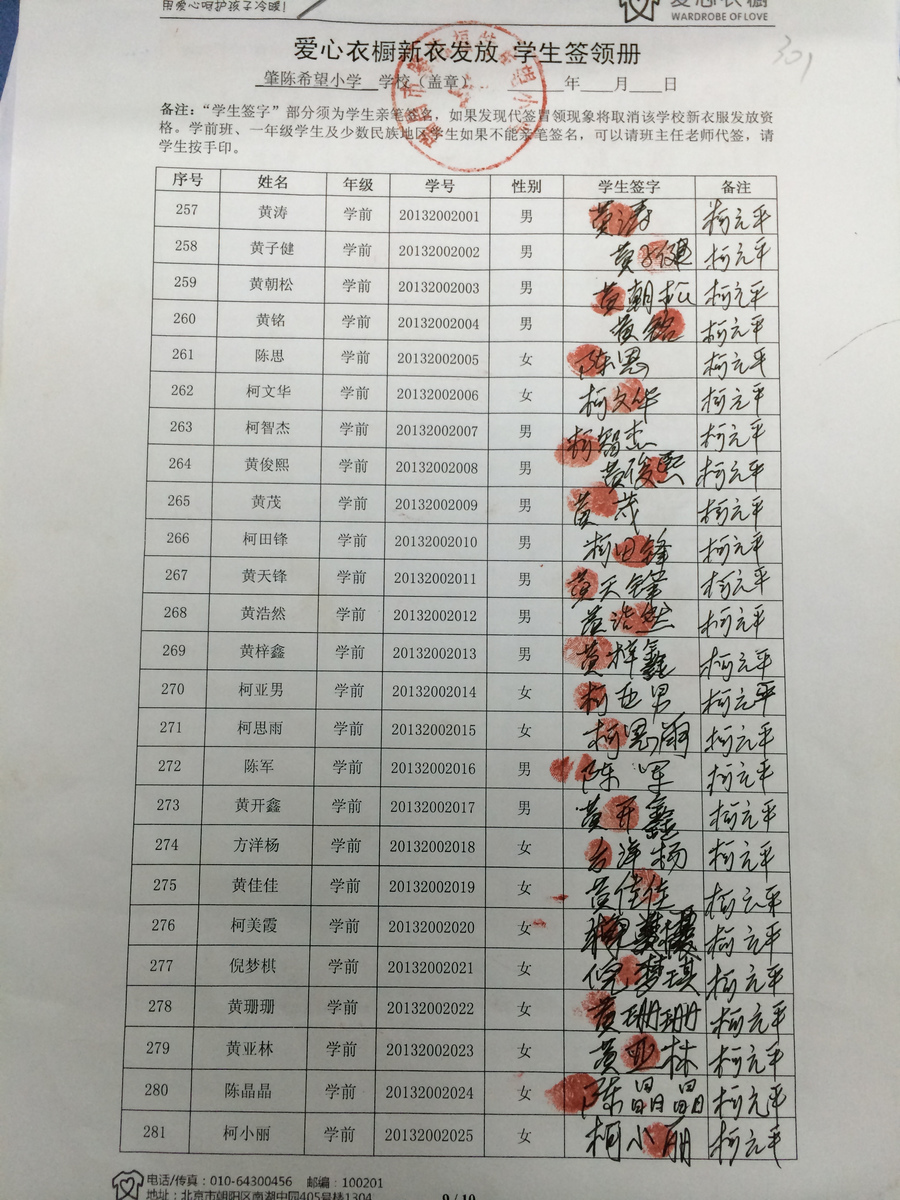 用爱心呵护孩子冷暖！
爱心衣橱
WARDROBE OF LOVE
301
爱心衣橱新衣发放 学生签领册
肇陈希望小学 学校（盖章） 年 月 日
备注：“学生签字”部分须为学生亲笔签名，如果发现代签冒领现象将取消该学校新衣服发放资
格。学前班、一年级学生及少数民族地区学生如果不能亲笔签名，可以请班主任老师代签，请
学生按手印。
序号 姓名 年级 学号 性别 学生签字 备注
257 黄涛 学前 20132002001 男 黄涛 柯元平
258 黄子健 学前 20132002002 男 黄子健 柯元平
259 黄朝松 学前 20132002003 男 黄朝松 柯元平
260 黄铭 学前 20132002004 男 黄铭 柯元平
261 陈思 学前 20132002005 女 陈思 柯元平
262 柯文华 学前 20132002006 女 柯文华 柯元平
263 柯智杰 学前 20132002007 男 柯智杰 柯元平
264 黄俊熙 学前 20132002008 男 黄俊熙 柯元平
265 黄茂 学前 20132002009 男 黄茂 柯元平
266 柯田锋 学前 20132002010 男 柯田锋 柯元平
267 黄天锋 学前 20132002011 男 黄天锋 柯元平
268 黄浩然 学前 20132002012 男 黄浩然 柯元平
269 黄梓鑫 学前 20132002013 男 黄梓鑫 柯元平
270 柯亚男 学前 20132002014 女 柯亚男 柯元平
271 柯思雨 学前 20132002015 女 柯思雨 柯元平
272 陈军 学前 20132002016 男 陈军 柯元平
273 黄开鑫 学前 20132002017 男 黄开鑫 柯元平
274 方洋杨 学前 20132002018 女 方洋杨 柯元平
275 黄佳佳 学前 20132002019 女 黄佳佳 柯元平
276 柯美霞 学前 20132002020 女 柯美霞 柯元平
277 倪梦棋 学前 20132002021 女 倪梦琪 柯元平
278 黄珊珊 学前 20132002022 女 黄珊珊 柯元平
279 黄亚林 学前 20132002023 女 黄亚林 柯元平
280 陈晶晶 学前 20132002024 女 陈晶晶 柯元平
281 柯小丽 学前 20132002025 女 柯小丽 柯元平
电话/传真：010-64300456 邮编：100201
地址：北京市朝阳区南湖中园405号楼1304
9 / 10